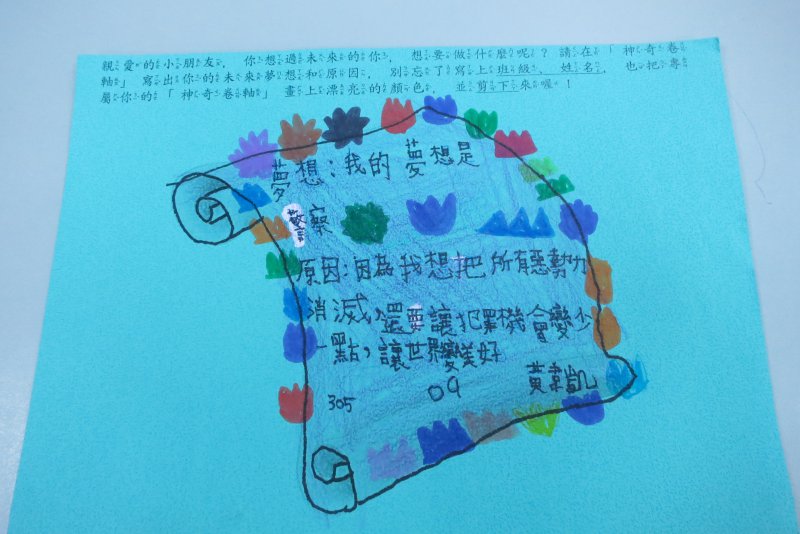 親愛的小朋友，你想過未來的你，想要做什麼呢？請在「神奇卷
軸」寫出你的未來夢想和原因，別忘了寫上班級、姓名，也把專
屬你的「神奇卷軸」畫上漂亮的顏色，並剪下來喔！
夢想：我的夢想是
警察
原因：因為我想把所有惡勢力
消滅，還要讓犯罪機會變少
一點，讓世界變美好
305 09 黃韋凱